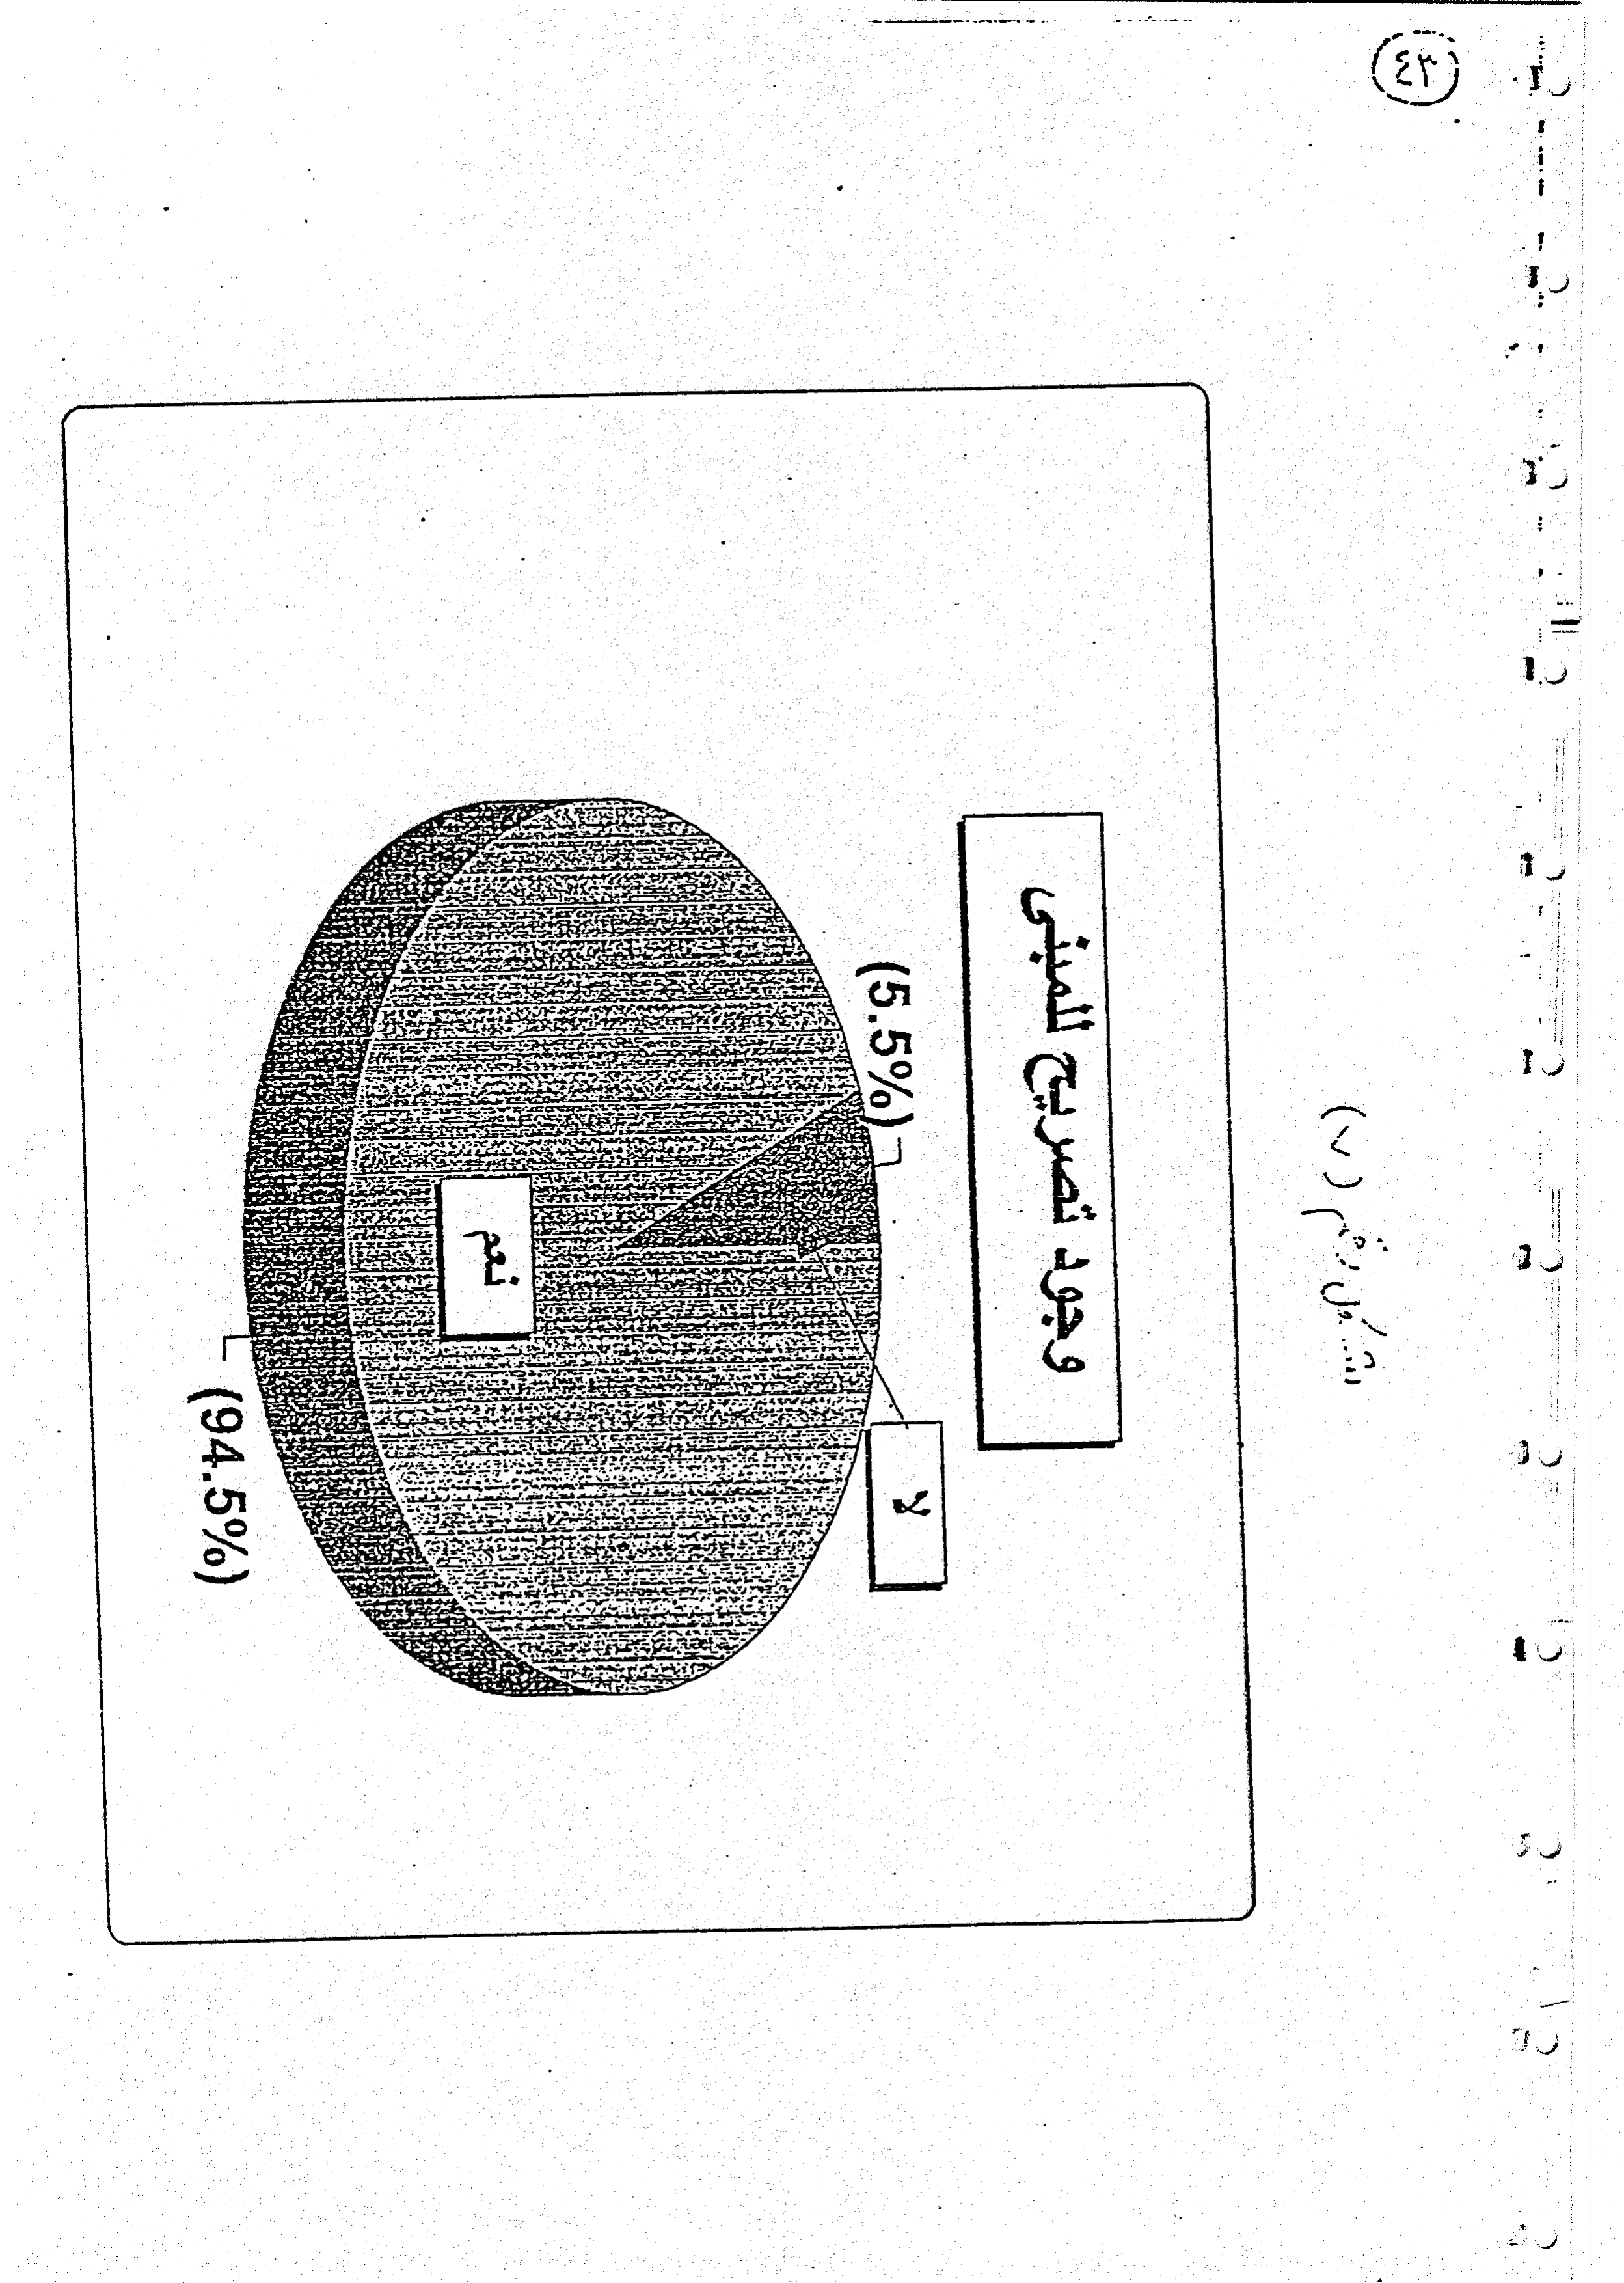 ٤٣
شكل رقم (٧)
وجود تصريح للمبنى
(5.5%)
لا
نعم
(94.5%)